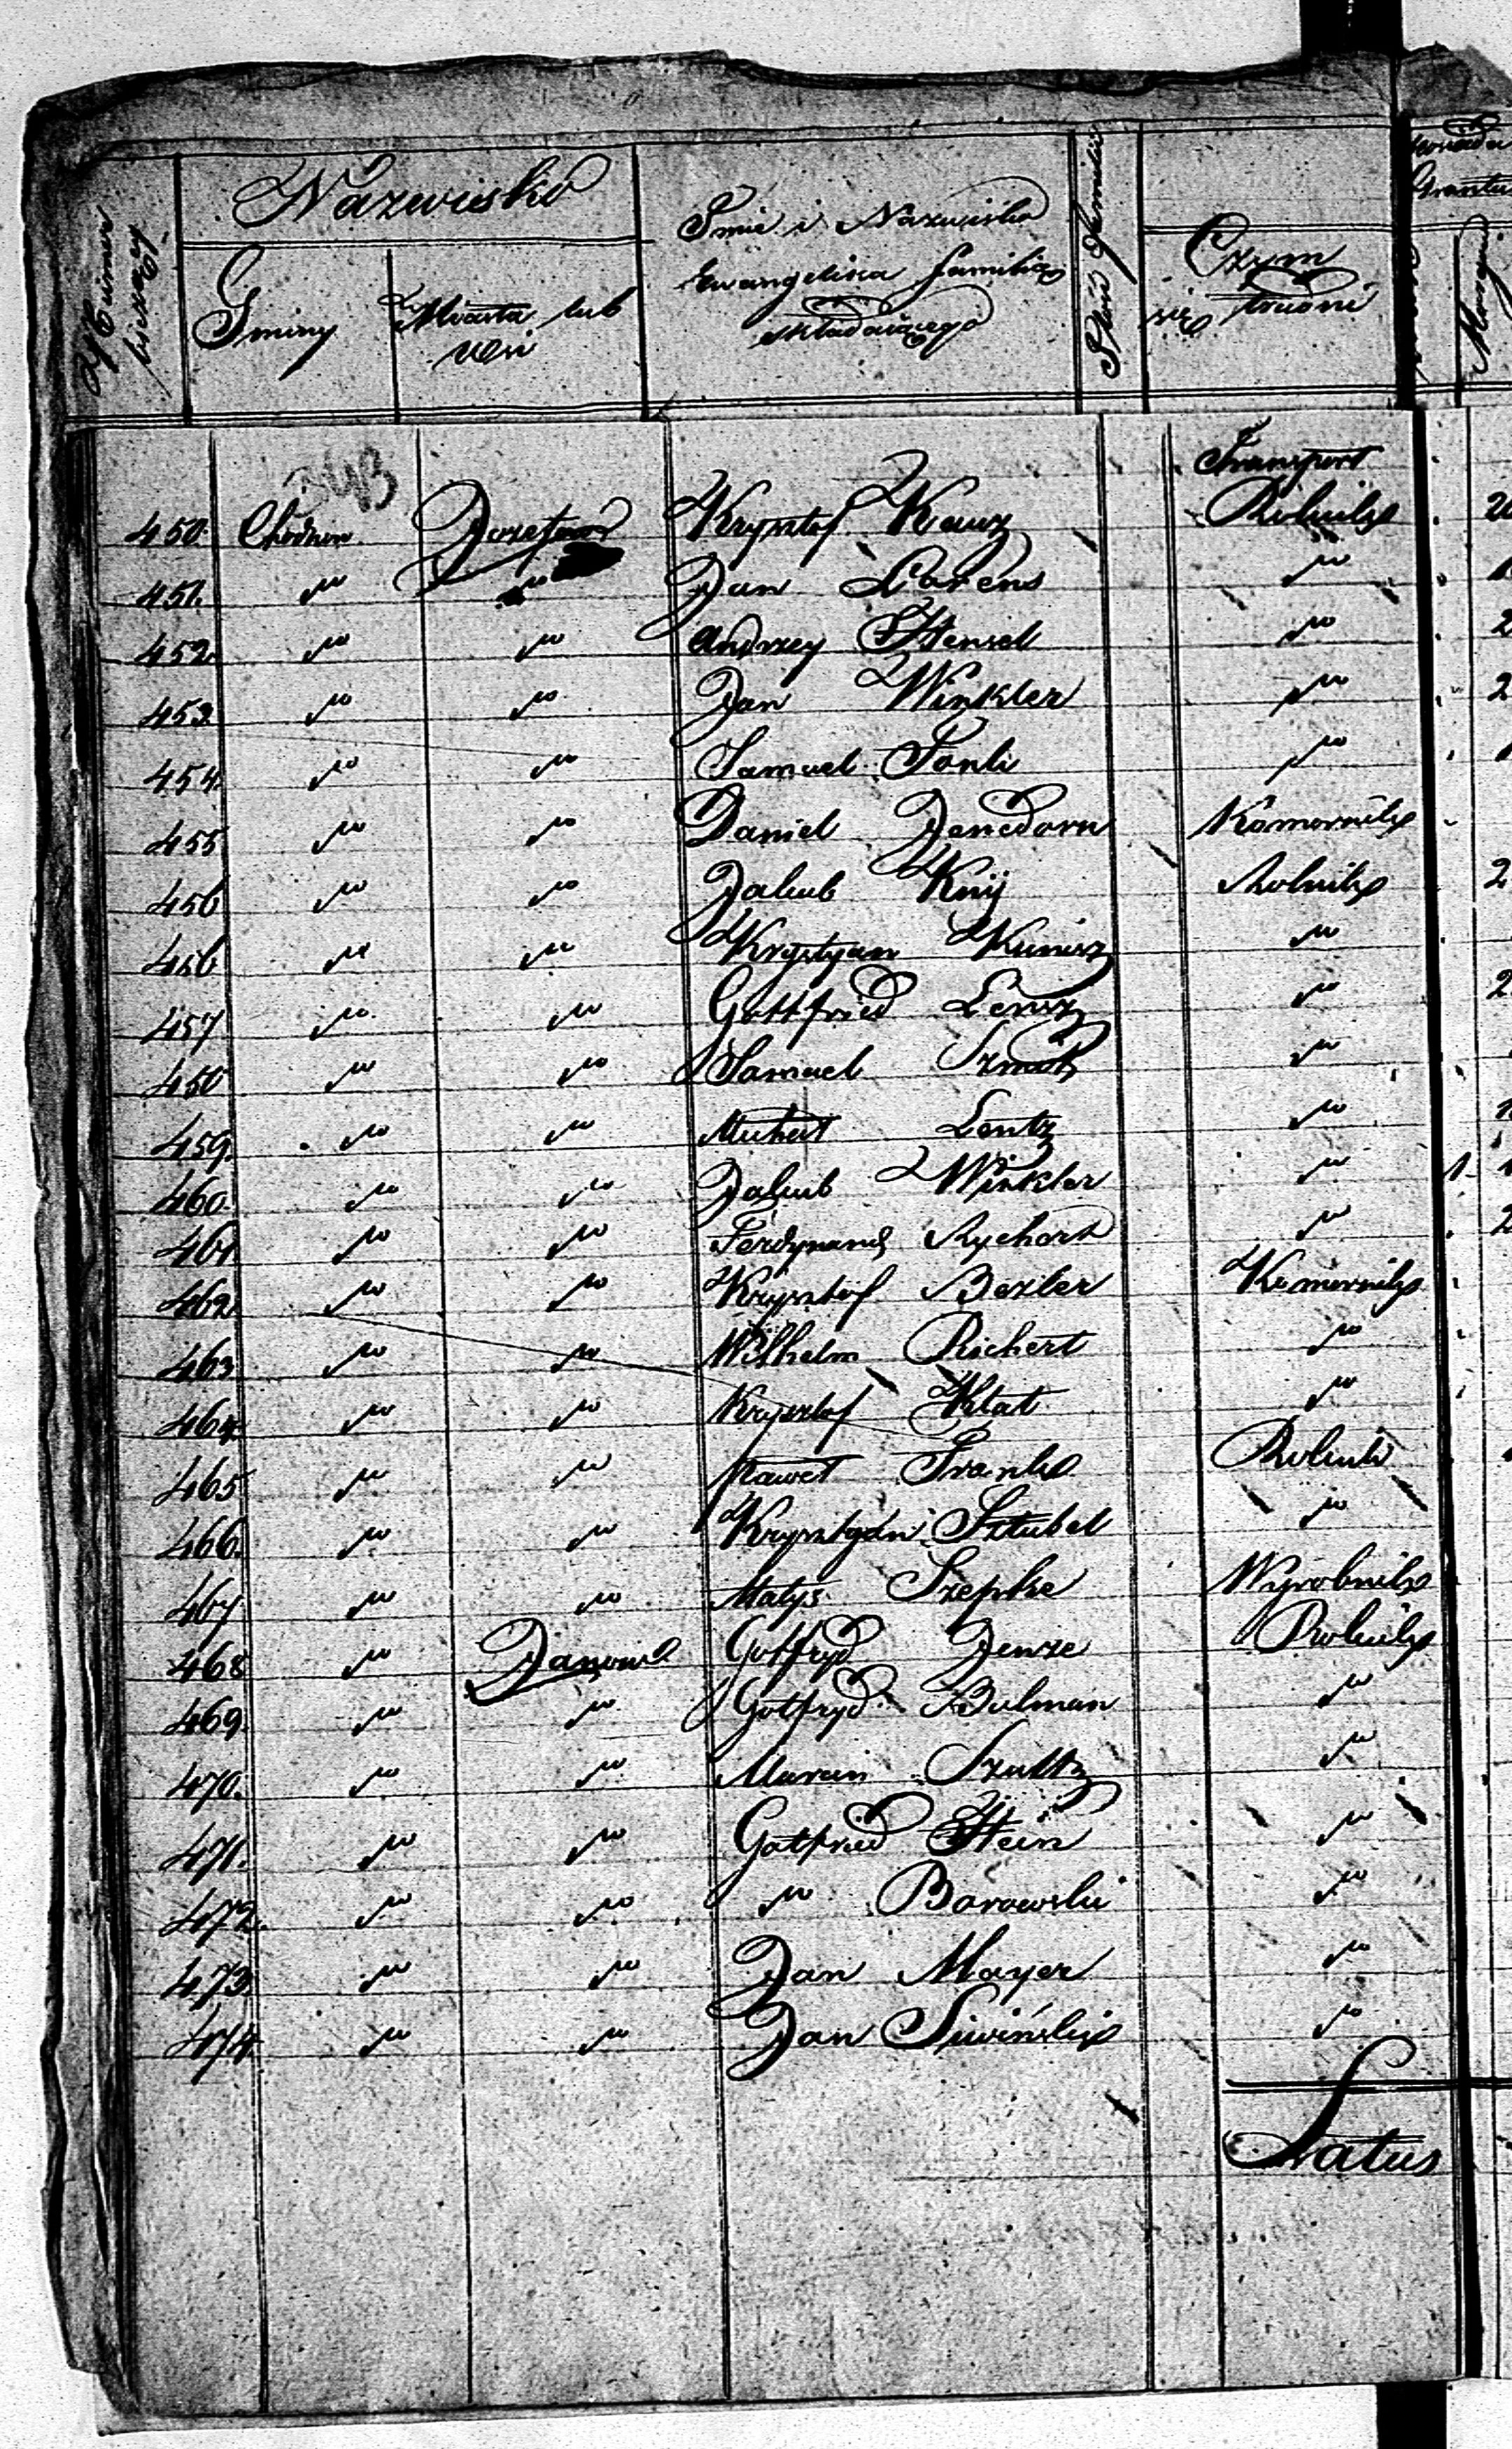 Numer bieżący
Nazwisko
Gminy
Miasta lub wsi
Imie i Nazwisko
Ewangelika familią
składaiącego
Czem
się trudni
Transport
450. Chodnów Józefów Krysztof Kauz Rolnik
451. " " Jan Lorens "
452. " " Andrzey Hensel "
453 " " Jan Winkler "
454. " " Samuel "
455 " " Daniel Komornik
456 " " Jakub Knij Rolnik
456 " " Krystyan Kunisz "
457 " " Gottfried "
458 " " Samuel "
459. " " Michał Lentz "
460. " " Jakub Winkler "
461 " " Ferdynand Rychert "
462 " " Krysztof Bexler Komornik
463 " " Wilhelm Richert "
464 " " Krysztof Klat "
465 " " Paweł Frank Rolnik
466. " " Krysztyan Sztubel "
467 " " Matys Szepke Wyrobnik
468 " Janów Gotfryd Jenze Rolnik
469. " " Gotfryd Bulman "
470. " " Marcin Szultz "
471. " " Gotfried Hein "
472. " " " Borowski "
473 " " Jan Mayer "
474 " " Jan Siwiński "
Latus